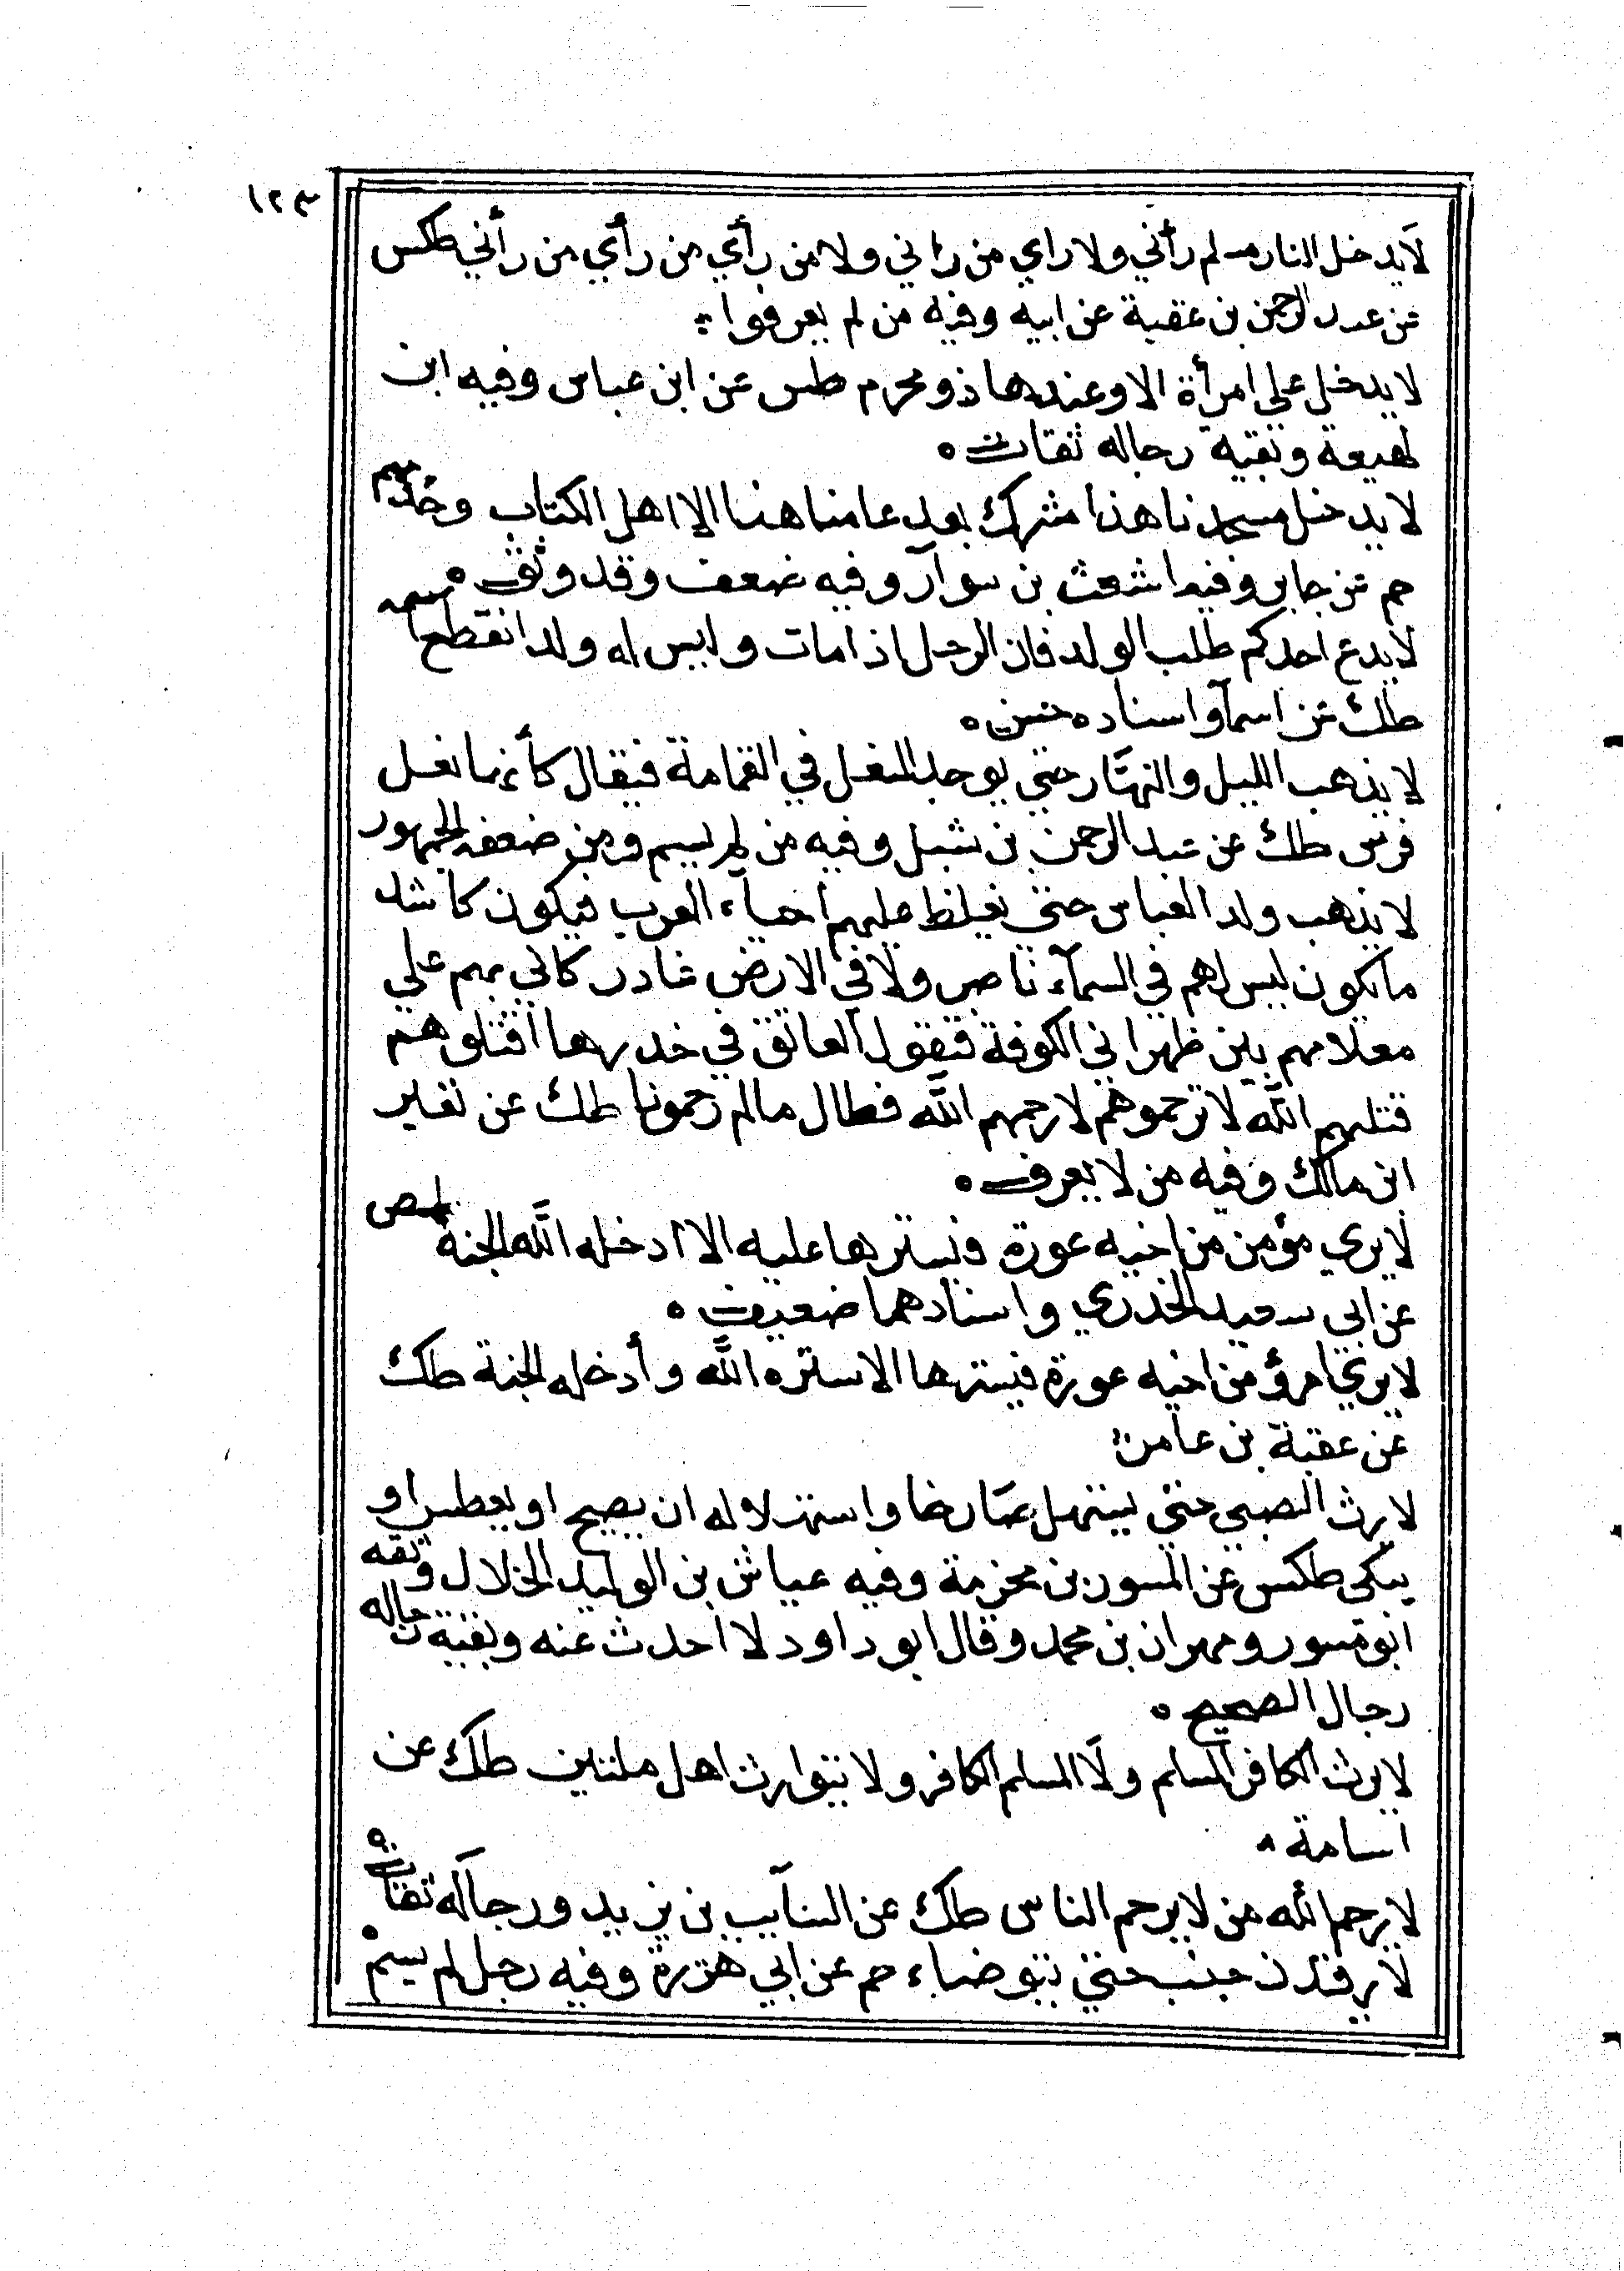 ١٢٣
لا يدخل النار مسلم رأني ولا راي من راني ولا من رأي من رأي من رأني طكس
عن عبد الرحمن بن عقبة عن ابيه وفيه من لم يعرفوا
لا يدخل علي امرأة الا وعندها ذو محرم طس عن ابن عباس وفيه ابن
لهيعة وبقية رجاله ثقات
لا يدخل مسجدنا هذا مشرك بعد عامنا هذا الا اهل الكتاب وخدمهم
حم عن جابر وفيه اشعث بن سوار وفيه ضعف وقد وثق
لا يدع احدكم طلب الولد فان الرجل اذا مات وليس له ولد انقطع اسمه
طك عن اسمآ واسناده حسن
لا يذهب الليل والنهار حتي يوجد النعل في القمامة فيقال كأنها نعل
قرسي طك عن عبد الرحمن بن شبل وفيه من لم يسم ومن ضعفه الجمهور
لا يذهب ولد العباس حتي تغلظ عليهم احيآء العرب فيكون كاشد
ما يكون ليس لهم في السمآء ناصر ولا في الارض عاذر كاني بهم علي
معلامهم بين ظهراني الكوفة فتقول العاتق في خدرها اقتلوهم
قتلهم الله لا ترحموهم لا رحمهم الله فطال ما لم يرحمونا طك عن نفير
ابن مالك وفيه من لا يعرف
لا يري مؤمن من اخيه عورة فيسترها عليه الا ادخله الله الجنة طس ص
عن ابي سعيد الخدري واسنادهما ضعيف
لا يري امرؤ من اخيه عورة فيسترها الا ستره الله وأدخله الجنة طك
عن عقبة بن عامر
لا يرث الصبي حتي يستهل صارخا واستهلاله ان يصيح او يعطس او
يبكي طكس عن المسور بن مخرمة وفيه عباش بن الوليد الخلال وثقه
ابو مسور ومهران بن محمد وقال ابو داود لا احدث عنه وبقية رجاله
رجال الصحيح
لا يرث الكافر المسلم ولا المسلم الكافر ولا يتوارث اهل ملتين طك عن
اسامة
لا يرحم الله من لا يرحم الناس طك عن السآيب بن يزيد ورجاله ثقات
لا يرقدن جنب حتي يتوضاء حم عن ابي هريرة وفيه رجل لم يسم